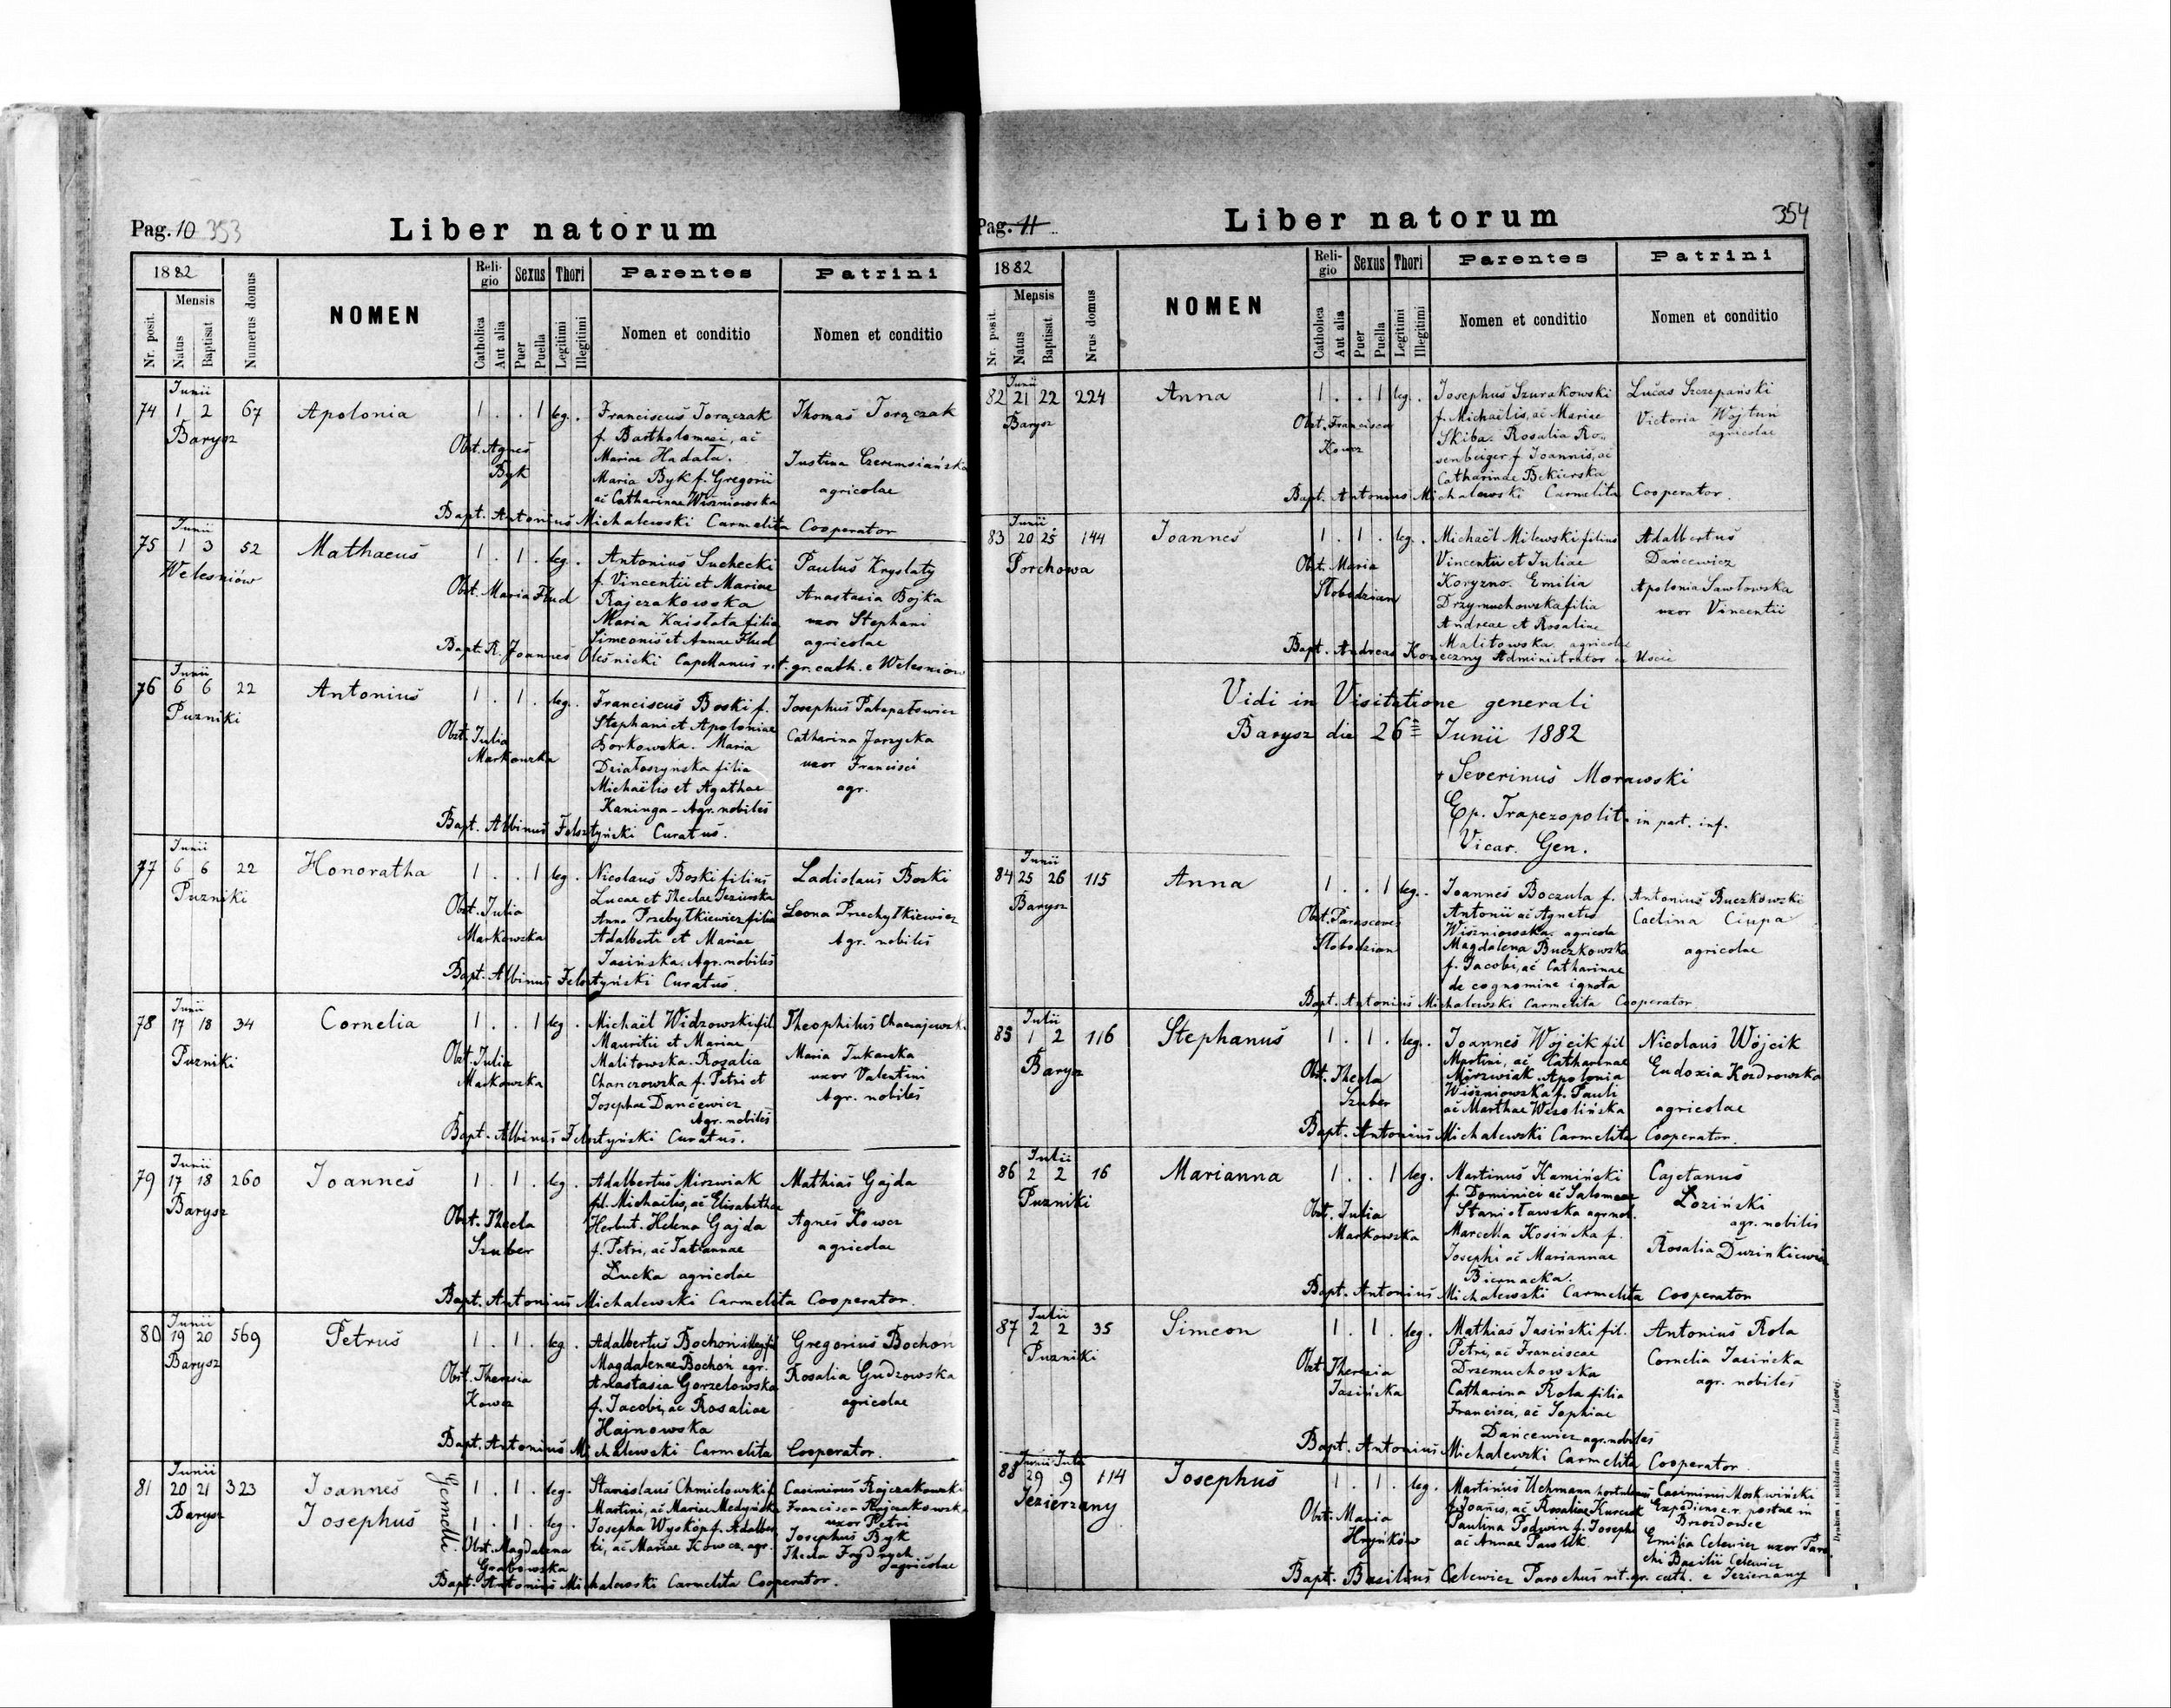 Pag. 10 353
Liber natorum
1882
Mensis
Nr. posit.
Natus
Baptisat
Numerus domus
NOMEN
Religio
Catholica
Aut alia
Sexus
Puer
Puella
Thori
Legitimi
Illegitimi
Parentes
Nomen et conditio
Patrini
Nomen et conditio
74 Junii 1 2 67 Apolonia 1 . . 1 leg. .
Barysz
Obst. Agnes
Byk
Franciscus Torączak
f. Bartholomaei, ac
Mariae Hadala.
Maria Byk f. Gregorii
ac Catharinae Wiśniowska
Thomas Torączak
Justina Czeremsiańska
agricolae
Bapt. Antonius Michalewski Carmelita Cooperator
75 Junii 1 3 52 Mathaeus 1 . 1 . leg. .
Welesniów
Obst. Maria Flud
Antonius Suchecki
f. Vincentii et Mariae
Rajczakowska
Maria Kaislata filia
Simeonis et Annae Flud
Paulus Kryslaty
Anastasia Bojka
uxor Stephani
agricolae
Bapt. R. Joannes Oleśnicki Capellanus rit. gr. cath. e Welesniow
76 Junii 6 6 22 Antonius 1 . 1 . leg. .
Puzniki
Obst. Julia
Markowska
Franciscus Boski f.
Stephani et Apoloniae
Borkowska. Maria
Działoszyńska filia
Michaëlis et Agathae
Kaninga - Agr. nobiles
Josephus
Catharina Jarzycka
uxor Francisci
agr.
Bapt. Albinus Felsztyński Curatus.
77 Junii 6 6 22 Honoratha 1 . . 1 leg .
Puzniki
Obst. Julia
Markowska
Nicolaus Boski filius
Lucae et Theclae Jezierska
Anna Przebytkiewicz filia
Adalberti et Mariae
Jasińska. Agr. nobiles
Ladislaus Boski
Leona Przechytkiewicz
Agr. nobiles
Bapt. Albinus Felsztyński Curatus.
78 Junii 17 18 34 Cornelia 1 . . 1 leg .
Puzniki
Obst. Julia
Markowska
Michaël Widzowski fil
Mauritii et Mariae
Malitowska. Rosalia
Chanczowska f. Petri et
Josephae Dańcewicz
Agr. nobiles
Theophilus
Maria
uxor Valentini
Agr. nobiles
Bapt. Albinus Felsztyński Curatus.
79 Junii 17 18 260 Joannes 1 . 1 . leg .
Barysz
Obst. Thecla
Szuber
Adalbertus Mirzwiak
fil. Michaëlis, ac Elisabethae
Herbut. Helena Gajda
f. Petri, ac Tatiannae
Łucka agricolae
Mathias Gajda
Agnes Kowcz
agricolae
Bapt. Antonius Michalewski Carmelita Cooperator.
80 Junii 19 20 569 Petrus 1 . 1 . leg .
Barysz
Obst. Theresia
Kowcz
Adalbertus Bochoń illeg. fil
Magdalenae Bochoń agr.
Anastasia Gorzelowska
f. Jacobi, ac Rosaliae
Hajnowska
Gregorius Bochoń
Rosalia Gudzowska
agricolae
Bapt. Antonius Michalewski Carmelita Cooperator.
81 Junii 20 21 323 Joannes 1 . 1 . leg.
Barysz Josephus 1 . 1 . leg.
Gemelli
Obst. Magdalena
Grabowska
Stanislaus Chmielowski f.
Martini, ac Mariae Medyńska
Josepha Wyskop f. Adalber
ti, ac Mariae Kowcz, agr.
Casimirus Rajczakowski
Francisca Rajczakowska
uxor Petri
Josephus Byk
Thecla Frydrych
agricolae
Bapt. Antonius Michalewski Carmelita Cooperator.
Pag. 11
Liber natorum
354
1882
Mensis
Nr. posit.
Natus
Baptisat.
Nrus domus
NOMEN
Religio
Catholica
Aut alia
Sexus
Puer
Puella
Thori
Legitimi
Illegitimi
Parentes
Nomen et conditio
Patrini
Nomen et conditio
82 Junii 21 22 224 Anna 1 . . 1 leg. .
Barysz
Obst. Francisca
Kowcz
Josephus Szurakowski
f. Michaëlis, ac Mariae
Skiba. Rosalia Ro„
senbeiger f. Joannis, ac
Catharinae Bekierska
Lucas Szczepański
Victoria Wojtuń
agricolae
Bapt. Antonius Michalewski Carmelita Cooperator.
83 Junii 20 25 144 Joannes 1 . 1 . leg. .
Porchowa
Obst. Maria
Słobodzian
Michaël Milewski filius
Vincentii et Juliae
Koryzno. Emilia
Drzymuchowska filia
Andreae et Rosaliae
Malitowska. agricolae
Adalbertus
Dańcewicz
Apolonia Sawłowska
uxor Vincentii
Bapt. Andreas Koneczny Administrator ex Uscie
Vidi in Visitatione generali
Barysz die 26 Junii 1882
+ Severinus Morawski
Ep. Trapezopolit. in part. inf.
Vicar. Gen.
84 Junii 25 26 115 Anna 1 . . 1 leg. .
Barysz
Obst. Parasceves
Słobodzian
Joannes Boczula f.
Antonii ac Agnetis
Wiśniowska. agricola
Magdalena Buczkowska
f. Jacobi, ac Catharinae
de cognomine ignota
Antonius Buczkowski
Caelina Ciupa
agricolae
Bapt. Antonius Michalewski Carmelita Cooperator.
85 Julii 1 2 116 Stephanus 1 . 1 . leg. .
Barysz
Obst. Thecla
Szuber
Joannes Wojcik fil
Martini, ac Catharinae
Mirzwiak. Apolonia
Wiśniowska f. Pauli
ac Marthae Wesolińska
Nicolaus Wójcik
Eudoxia Kozdrowska
agricolae
Bapt. Antonius Michalewski Carmelita Cooperator.
86 Julii 2 2 16 Marianna 1 . . 1 leg. .
Puzniki
Obst. Julia
Markowska
Martinus Kamiński
f. Dominici ac Salomeae
Stanisławska agr. nob.
Marcella Kosińska f.
Josephi ac Mariannae
Biernacka.
Cajetanus
Łoziński
agr. nobilis
Rosalia Duzinkiewicz
Bapt. Antonius Michalewski Carmelita Cooperator
87 Julii 2 2 35 Simeon 1 . 1 . leg .
Puzniki
Obst. Theresia
Jasińska
Mathias Jasiński fil.
Petri, ac Franciscae
Drzemuchowska
Catharina Rola filia
Francisci, ac Sophiae
Dańcewicz agr. nobiles
Antonius Rola
Cornelia Jasińska
agr. nobiles
Bapt. Antonius Michalewski Carmelita Cooperator.
88 Junii Julii 29 9 114 Josephus 1 . 1 . leg.
Jezierzany
Obst. Maria
Hryńków
Martinus Uchmann hortulanus
f. Joannis, ac Rosaliae Kurczak
Paulina Podwin f. Josephi
ac Annae Pawlik
Casimirus Moskwiński
postae in
Brzozdowce
Emilia Celewicz uxor Paro
chi Basilii Celewicz
Bapt. Basilius Celewicz Parochus rit. gr. cath. e Jezierzany
Drukiem i nakładem Drukarni Ludowej.